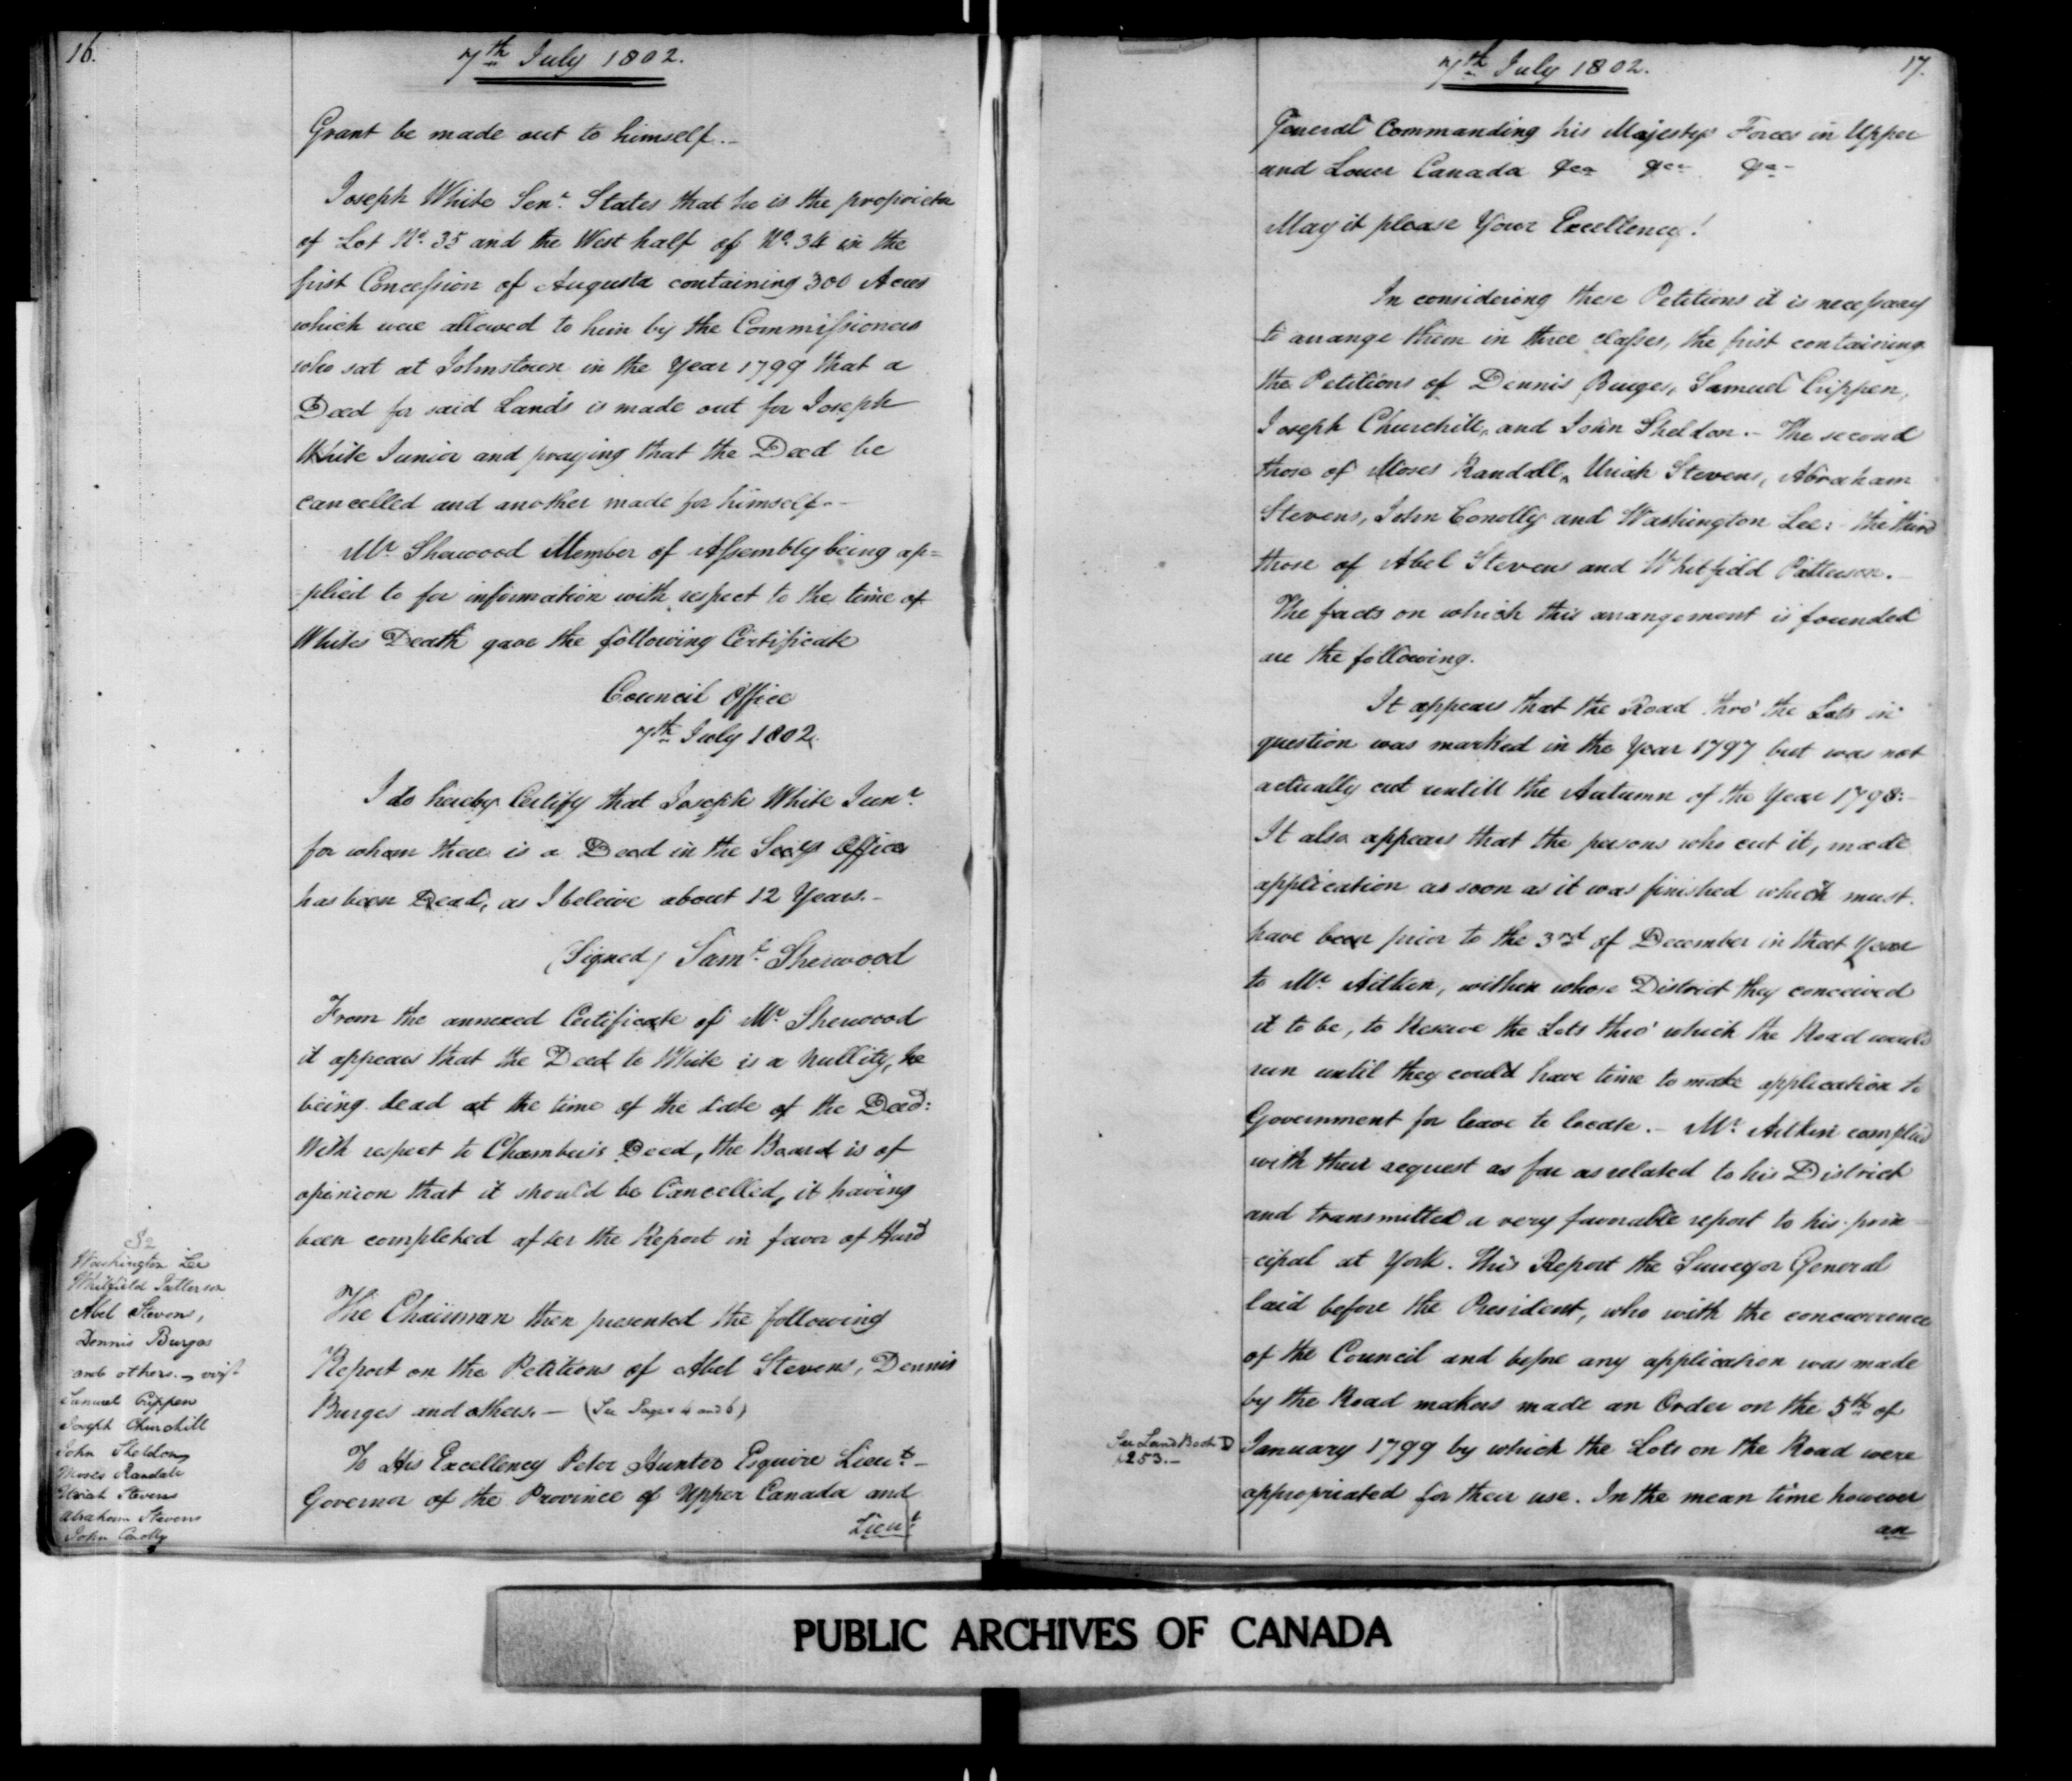 16.
7th July 1802.
Grant be made out to himself.-
Joseph White Senr. States that he is the proprietor
of Lot No. 35 and the West half of No. 34 in the
first Concession of Augusta containing 300 Acres
which were allowed to him by the Commissioners
who sat at Johnstown in the Year 1799 that a
Deed for said Lands is made out for Joseph
White Junior and praying that the Deed be
cancelled and another made for himself.-
Mr Sherwood Member of Assembly being ap=
plied to for information with respect to the time of
Whites Death gave the following Certificate
Council Office
7th July 1802.
I do hereby Certify that Joseph White Junr.
for whom there is a Deed in the Secys Office
has been Dead, as I beleive about 12 Years.-
(Signed) Saml. Sherwood
From the annexed Certificate of Mr Sherwood
it appears that the Deed to White is a Nullity, he
being dead at the time of the date of the Deed:
With respect to Chambers's Deed, the Board is of
opinion that it should be Cancelled, it having
been completed after the Report in favor of Hurd
82
Washington Lee
Whitfield Patterson
Abel Stevens,
Dennis Burges
and others. vizt
Samuel Crippen
Joseph Churchill
John Sheldon
Moses Randall
Uriah Stevens
Abraham Stevens
John Conolly
The Chairman then presented the following
Report on the Petitions of Abel Stevens, Dennis
Burges and others.- (See Pages 4 and 6)
To His Excellency Peter Hunter Esquire Lieut.-
Governor of the Province of Upper Canada and
Lieut
7th July 1802.
17.
General Commanding his Majestys Forces in Upper
and Lower Canada &ca &ca &ca-
May it please Your Excellency!
In considering these Petitions it is necessary
to arrange them in three classes, the first containing
the Petitions of Dennis Burges, Samuel Crippen,
Joseph Churchill, and John Sheldon.- The second
those of Moses Randall, Uriah Stevens, Abraham
Stevens, John Conolly and Washington Lee: the third
those of Abel Stevens and Whitfield Patterson.
The facts on which this arrangement is founded
are the following.
It appears that the Road thro' the Lots in
question was marked in the Year 1797 but was not
actually cut untill the Autumn of the Year 1798:-
It also appears that the persons who cut it, made
application as soon as it was finished which must
have been prior to the 3rd of December in that Year
to Mr Aitken, within whose District they conceived
it to be, to Reserve the Lots thro' which the Road would
run until they could have time to make application to
Government for leave to locate.- Mr. Aitken complied
with their request as far as related to his District
and transmitted a very favorable report to his prin
=cipal at York. This Report the Surveyor General
laid before the President, who with the concurrence
of the Council and before any application was made
by the Road makers made an Order on the 5th of
See Land Book D
p253.-
January 1799 by which the Lots on the Road were
appropriated for their use. In the mean time however
an
PUBLIC ARCHIVES OF CANADA